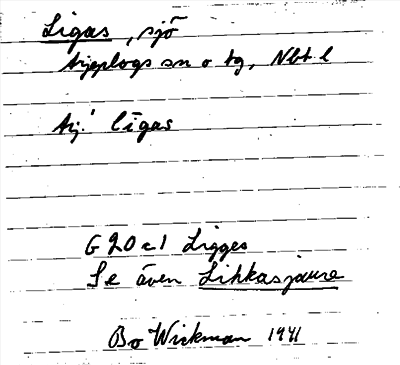 Ligas, sjö
Arjeplogs sn o tg, Nbt. l
Arj.! līgas
G 20 c 1 Ligges
Se även Lihkasjaure
Bo Wickman 1941